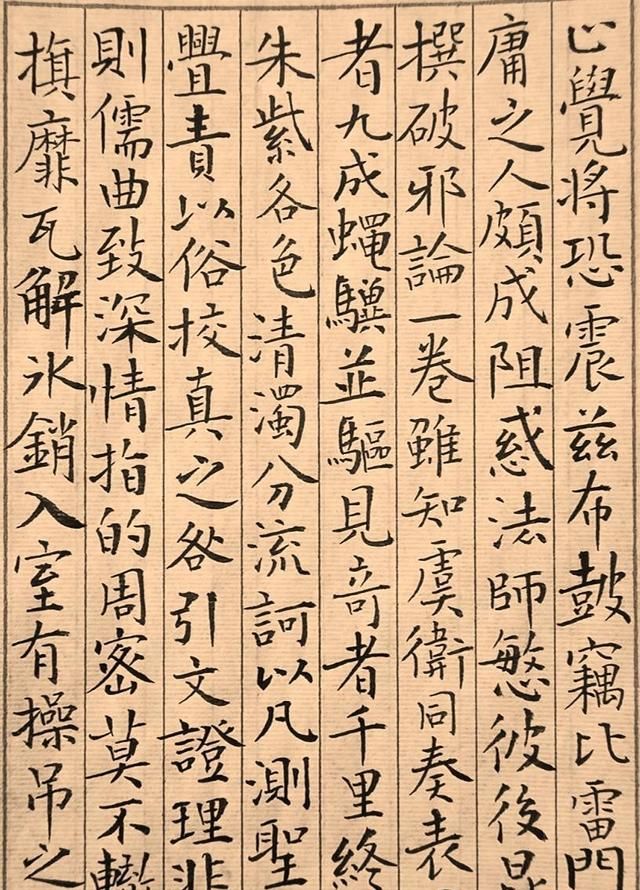 心覺將恐震茲布鼓竊比雷門
庸之人頗成阻惑法師愍彼後昆
撰破邪論一卷雖知虞衛同奏表
者九成蠅驥並驅見竒者千里終
朱紫各色清濁分流訶以凡測聖
舋責以俗校真之咎引文證理非
則儒曲致深情指的周密莫不轍
旗靡瓦解氷銷入室有操吊之